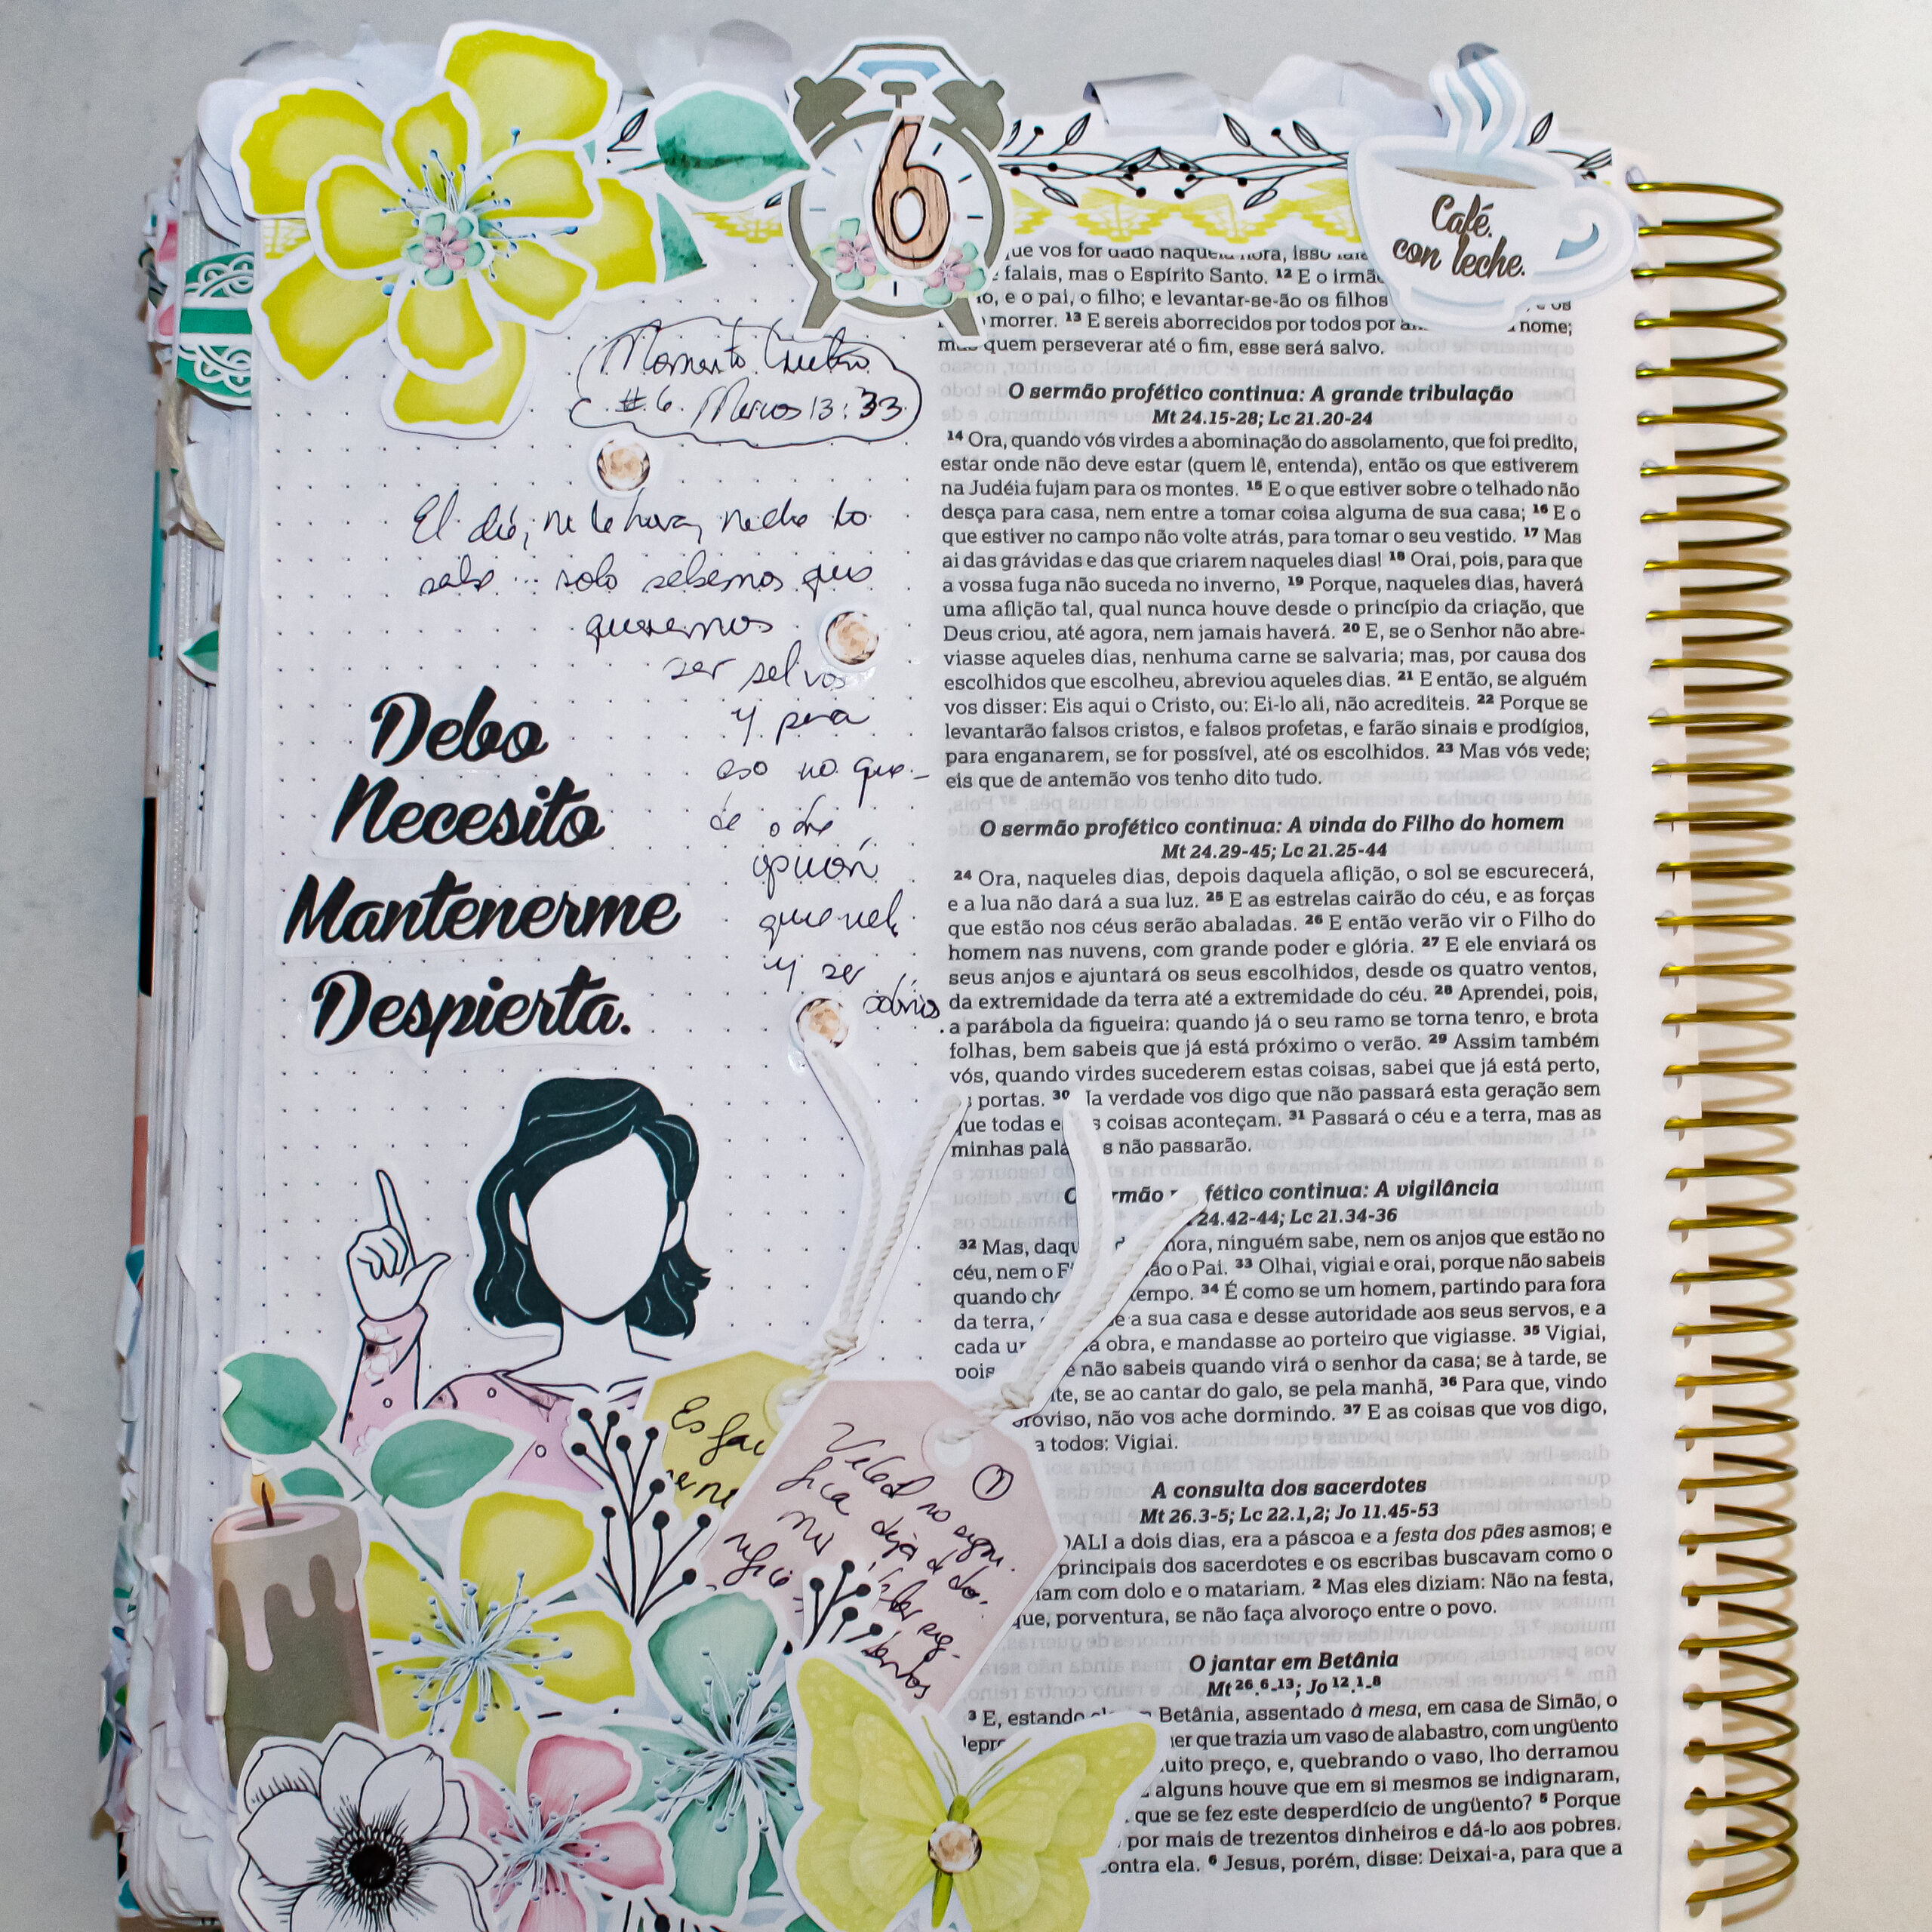 6
Café.
con leche.
Momento
#6. Marcos 13:33
El día, ni la hora, nadie lo
sabe... solo sabemos que
queremos
ser salvos
y para
eso no que-
da otra
opción
que velar
y ser
sobrios
Debo
Necesito
Mantenerme
Despierta.
Es
Velad no signi-
fica dejar de do
①
que vos for dado naquela hora, isso
falais, mas o Espírito Santo. 12 E o irmão
o, e o pai, o filho; e levantar-se-ão os filhos
morrer. 13 E sereis aborrecidos por todos por nome;
mas quem perseverar até o fim, esse será salvo.
O sermão profético continua: A grande tribulação
Mt 24.15-28; Lc 21.20-24
14 Ora, quando vós virdes a abominação do assolamento, que foi predito,
estar onde não deve estar (quem lê, entenda), então os que estiverem
na Judéia fujam para os montes. 15 E o que estiver sobre o telhado não
desça para casa, nem entre a tomar coisa alguma de sua casa; 16 E o
que estiver no campo não volte atrás, para tomar o seu vestido. 17 Mas
ai das grávidas e das que criarem naqueles dias! 18 Orai, pois, para que
a vossa fuga não suceda no inverno, 19 Porque, naqueles dias, haverá
uma aflição tal, qual nunca houve desde o princípio da criação, que
Deus criou, até agora, nem jamais haverá. 20 E, se o Senhor não abre-
viasse aqueles dias, nenhuma carne se salvaria; mas, por causa dos
escolhidos que escolheu, abreviou aqueles dias. 21 E então, se alguém
vos disser: Eis aqui o Cristo, ou: Ei-lo ali, não acrediteis. 22 Porque se
levantarão falsos cristos, e falsos profetas, e farão sinais e prodígios,
para enganarem, se for possível, até os escolhidos. 23 Mas vós vede;
eis que de antemão vos tenho dito tudo.
O sermão profético continua: A vinda do Filho do homem
Mt 24.29-45; Lc 21.25-44
24 Ora, naqueles dias, depois daquela aflição, o sol se escurecerá,
e a lua não dará a sua luz. 25 E as estrelas cairão do céu, e as forças
que estão nos céus serão abaladas. 26 E então verão vir o Filho do
homem nas nuvens, com grande poder e glória. 27 E ele enviará os
seus anjos e ajuntará os seus escolhidos, desde os quatro ventos,
da extremidade da terra até a extremidade do céu. 28 Aprendei, pois,
a parábola da figueira: quando já o seu ramo se torna tenro, e brota
folhas, bem sabeis que já está próximo o verão. 29 Assim também
vós, quando virdes sucederem estas coisas, sabei que já está perto,
portas. 30 Na verdade vos digo que não passará esta geração sem
que todas coisas aconteçam. 31 Passará o céu e a terra, mas as
minhas palavras não passarão.
O sermão profético continua: A vigilância
24.42-44; Lc 21.34-36
32 Mas, daqu hora, ninguém sabe, nem os anjos que estão no
céu, nem o F não o Pai. 33 Olhai, vigiai e orai, porque não sabeis
quando che tempo. 34 É como se um homem, partindo para fora
da terra, a sua casa e desse autoridade aos seus servos, e a
cada um a obra, e mandasse ao porteiro que vigiasse. 35 Vigiai,
pois e não sabeis quando virá o senhor da casa; se à tarde, se
te, se ao cantar do galo, se pela manhã, 36 Para que, vindo
proviso, não vos ache dormindo. 37 E as coisas que vos digo,
a todos: Vigiai.
A consulta dos sacerdotes
Mt 26.3-5; Lc 22.1,2; Jo 11.45-53
DALI a dois dias, era a páscoa e a festa dos pães asmos; e
principais dos sacerdotes e os escribas buscavam como o
iam com dolo e o matariam. 2 Mas eles diziam: Não na festa,
que, porventura, se não faça alvoroço entre o povo.
O jantar em Betânia
Mt 26.6-13; Jo 12.1-8
3 E, estando Betânia, assentado à mesa, em casa de Simão, o
lepro er que trazia um vaso de alabastro, com ungüento
uito preço, e, quebrando o vaso, lho derramou
alguns houve que em si mesmos se indignaram,
que se fez este desperdício de ungüento? 5 Porque
por mais de trezentos dinheiros e dá-lo aos pobres.
contra ela. 6 Jesus, porém, disse: Deixai-a, para que a